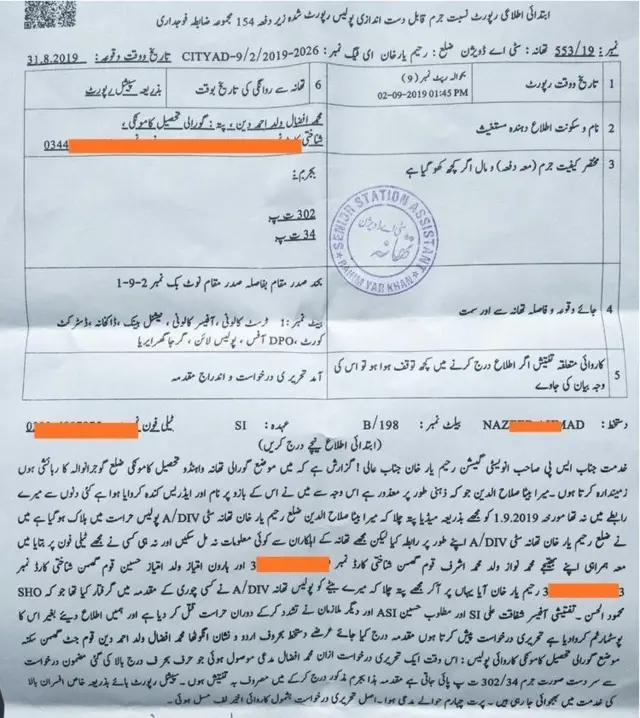 ابتدائی اطلاعی رپورٹ نسبت جرم قابل دست اندازی پولیس رپورٹ شدہ زیر دفعہ 154 مجموعہ ضابطہ فوجداری
نمبر: 553/19 تھانہ: سٹی اے ڈویژن ضلع: رحیم یار خان ای ٹیگ نمبر: CITYAD-9/2/2019-2026 تاریخ ووقت وقوعہ: 31.8.2019
1 تاریخ ووقت رپورٹ بحوالہ رپٹ نمبر (9) 02-09-2019 01:45 PM 6 تھانہ سے روانگی کی تاریخ بوقت بذریعہ سپیشل رپورٹ
2 نام و سکونت اطلاع دہندہ مستغیث محمد افضال ولد احمد دین، پتہ: گورالی تحصیل کامونکی،
شناختی کارڈ نمبر 0344
3 مختصر کیفیت جرم (معہ دفعہ) و مال اگر کچھ کھو گیا ہے بجرم:
302 ت پ
34 ت پ
SENIOR STATION ASSISTANT
تھانہ سٹی اے ڈویژن
RAHIM YAR KHAN
4 جائے وقوعہ و فاصلہ تھانہ سے اور سمت بحد صدر مقام بفاصلہ صدر مقام نوٹ بک نمبر 2-9-1
بیٹ نمبر: 1 ٹرسٹ کالونی، آفیسر کالونی، نیشنل بینک، ڈاکخانہ، ڈسٹرکٹ
کورٹ، DPO آفس، پولیس لائن، گرجا گھر ایریا
5 کاروائی متعلقہ تفتیش اگر اطلاع درج کرنے میں کچھ توقف ہوا ہو تو اس کی
وجہ بیان کی جاوے آمد تحریری درخواست و اندراج مقدمہ
دستخط: NAZ MAD بیلٹ نمبر: 198/B عہدہ: SI ٹیلی فون نمبر
(ابتدائی اطلاع نیچے درج کریں)
خدمت جناب ایس پی صاحب انویسٹی گیشن رحیم یار خان جناب عالی! گزارش ہے کہ میں موضع گورالی تھانہ واہنڈو تحصیل کامونکی ضلع گوجرانوالہ کا رہائشی ہوں
زمیندارہ کرتا ہوں۔ میرا بیٹا صلاح الدین جو کہ ذہنی طور پر معذور ہے اس وجہ سے میں نے اس کے بازو پر نام اور ایڈریس کندہ کروایا ہوا ہے کئی دنوں سے میرے
رابطے میں نہ تھا مورخہ 1.9.2019 کو مجھے بذریعہ میڈیا پتہ چلا کہ میرا بیٹا صلاح الدین ضلع رحیم یار خان تھانہ سٹی A/DIV پولیس حراست میں ہلاک ہو گیا ہے میں
نے ضلع رحیم یار خان تھانہ سٹی A/DIV اپنے طور پر رابطہ کیا لیکن مجھے تھانہ کے اہلکاران سے کوئی معلومات نہ مل سکیں اور نہ ہی کسی نے مجھے ٹیلی فون پر بتایا میں
معہ ہمراہی اپنے بھتیجے محمد نواز ولد محمد اشرف قوم گھمن شناختی کارڈ نمبر 3 اور ہارون امتیاز ولد امتیاز حسین قوم گھمن شناختی کارڈ نمبر
3 3 رحیم یار خان آیا یہاں پر آکر مجھے پتہ چلا کہ میرے بیٹے کو پولیس تھانہ A/DIV نے کسی چوری کے مقدمہ میں گرفتار کیا تھا جو کہ SHO
محمود الحسن۔ تفتیشی آفیسر شفاقت علی SI اور مطلوب حسین ASI اور دیگر ملازمان نے تشدد کر کے دوران حراست قتل کر دیا ہے اور ہمیں اطلاع دیئے بغیر اس کا
پوسٹمارٹم کروادیا ہے تحریری درخواست پیش کرتا ہوں مقدمہ درج کیا جائے عرضے دستخط بحروف اردو و نشان انگوٹھا محمد افضال ولد احمد دین قوم جٹ گھمن سکنہ
موضع گورالی تحصیل کامونکی کاروائی پولیس: اس وقت ایک تحریری درخواست ازاں محمد افضال مدعی موصول ہوئی جو حرف بحرف درج بالا کی گئی مضمون درخواست
سے سر دست صورت جرم 302/34 ت پ پائی جاتی ہے مقدمہ ہذا بجرم مذکور درج کر کے میں مصروف بہ تفتیش ہوں۔ سپیشل رپورٹ ہائے بذریعہ خاص افسران بالا
کی خدمت میں بھجوائی جا رہی ہیں۔ پرت چہارم حوالے مدعی ہوا۔ اصل تحریری درخواست بشمول کاروائی اخیر لف مسل ہوئی۔